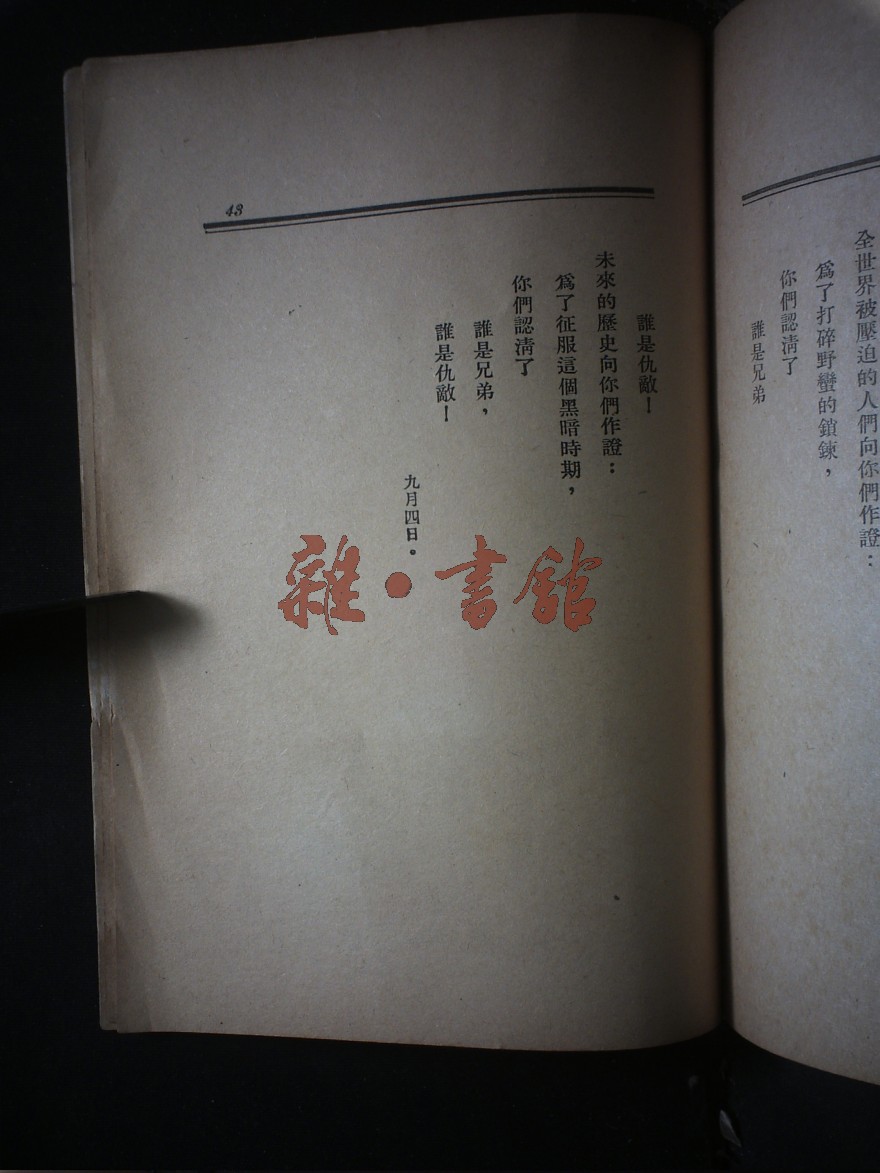 全世界被壓迫的人們向你們作證：
爲了打碎野蠻的鎖鍊，
你們認淸了
誰是兄弟
43
誰是仇敵！
未來的歷史向你們作證：
爲了征服這個黑暗時期，
你們認淸了
誰是兄弟，
誰是仇敵！
九月四日。
雜·書館